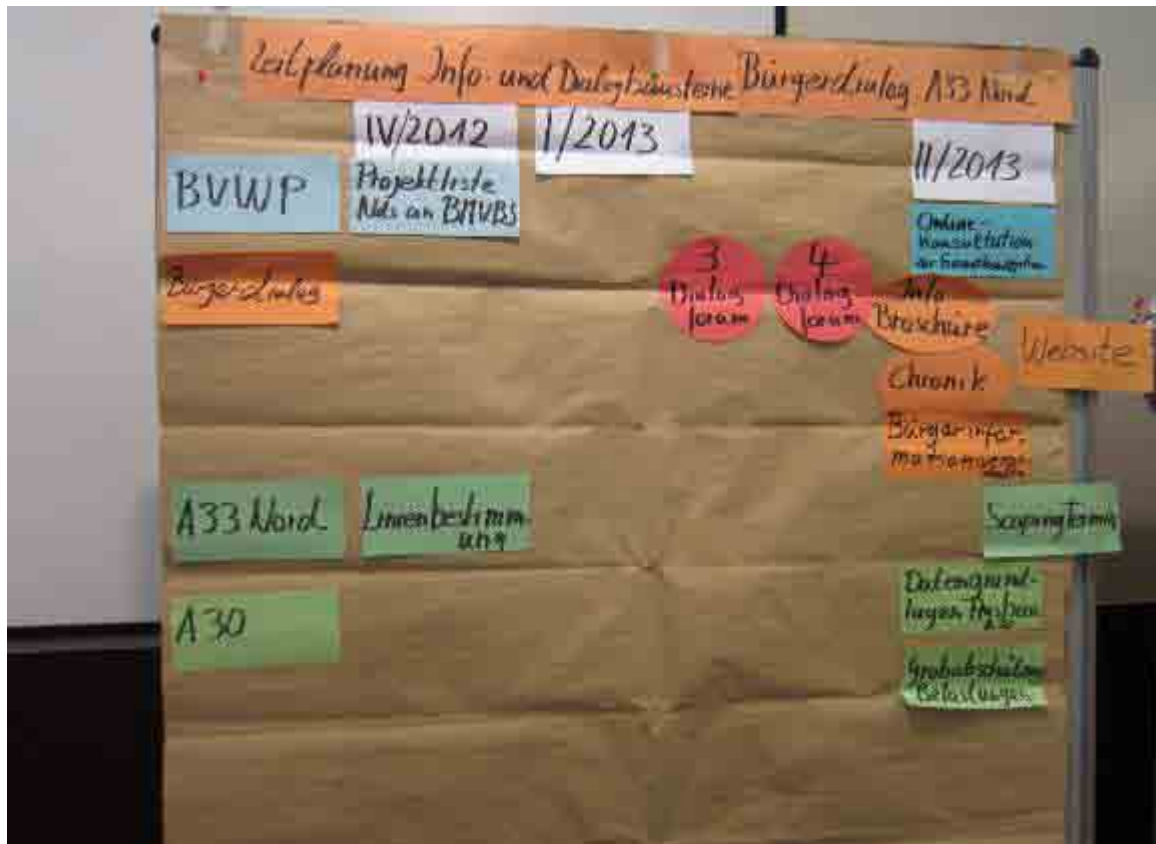 Zeitplanung Info- und Dialogbausteine Bürgerdialog A33 Nord
IV/2012
I/2013
II/2013
BVWP
Projektliste
Nds an BMVBS
Online-
Konsultation
Bürgerdialog
3
Dialog
forum
4
Dialog
forum
Info
Broschüre
Website
Chronik
Bürgerinfor-
A33 Nord
Linienbestimm-
ung
Scoping Termin
A30
Datengrund-
lagen
Grobabschätz
Belastungen